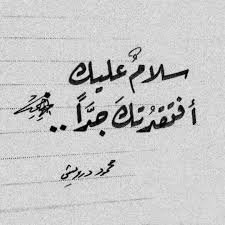 سلامٌ عليك
أفتقدتكَ جدًّا ..
محمود درويش